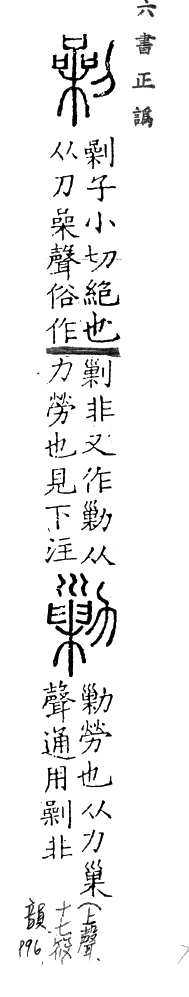 六書正譌
劋子小切絕也
从刀喿聲俗作
剿非又作勦从
力勞也見下注
勦勞也从力巢
聲通用劋非
(上聲
十七筱
韻
196